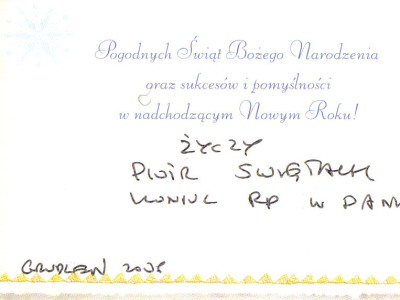 Pogodnych Świąt Bożego Narodzenia
oraz sukcesów i pomyślności
w nadchodzącym Nowym Roku!
ŻYCZY
PIOTR ŚWIĘTALIK
RP W
GRUDZIEŃ